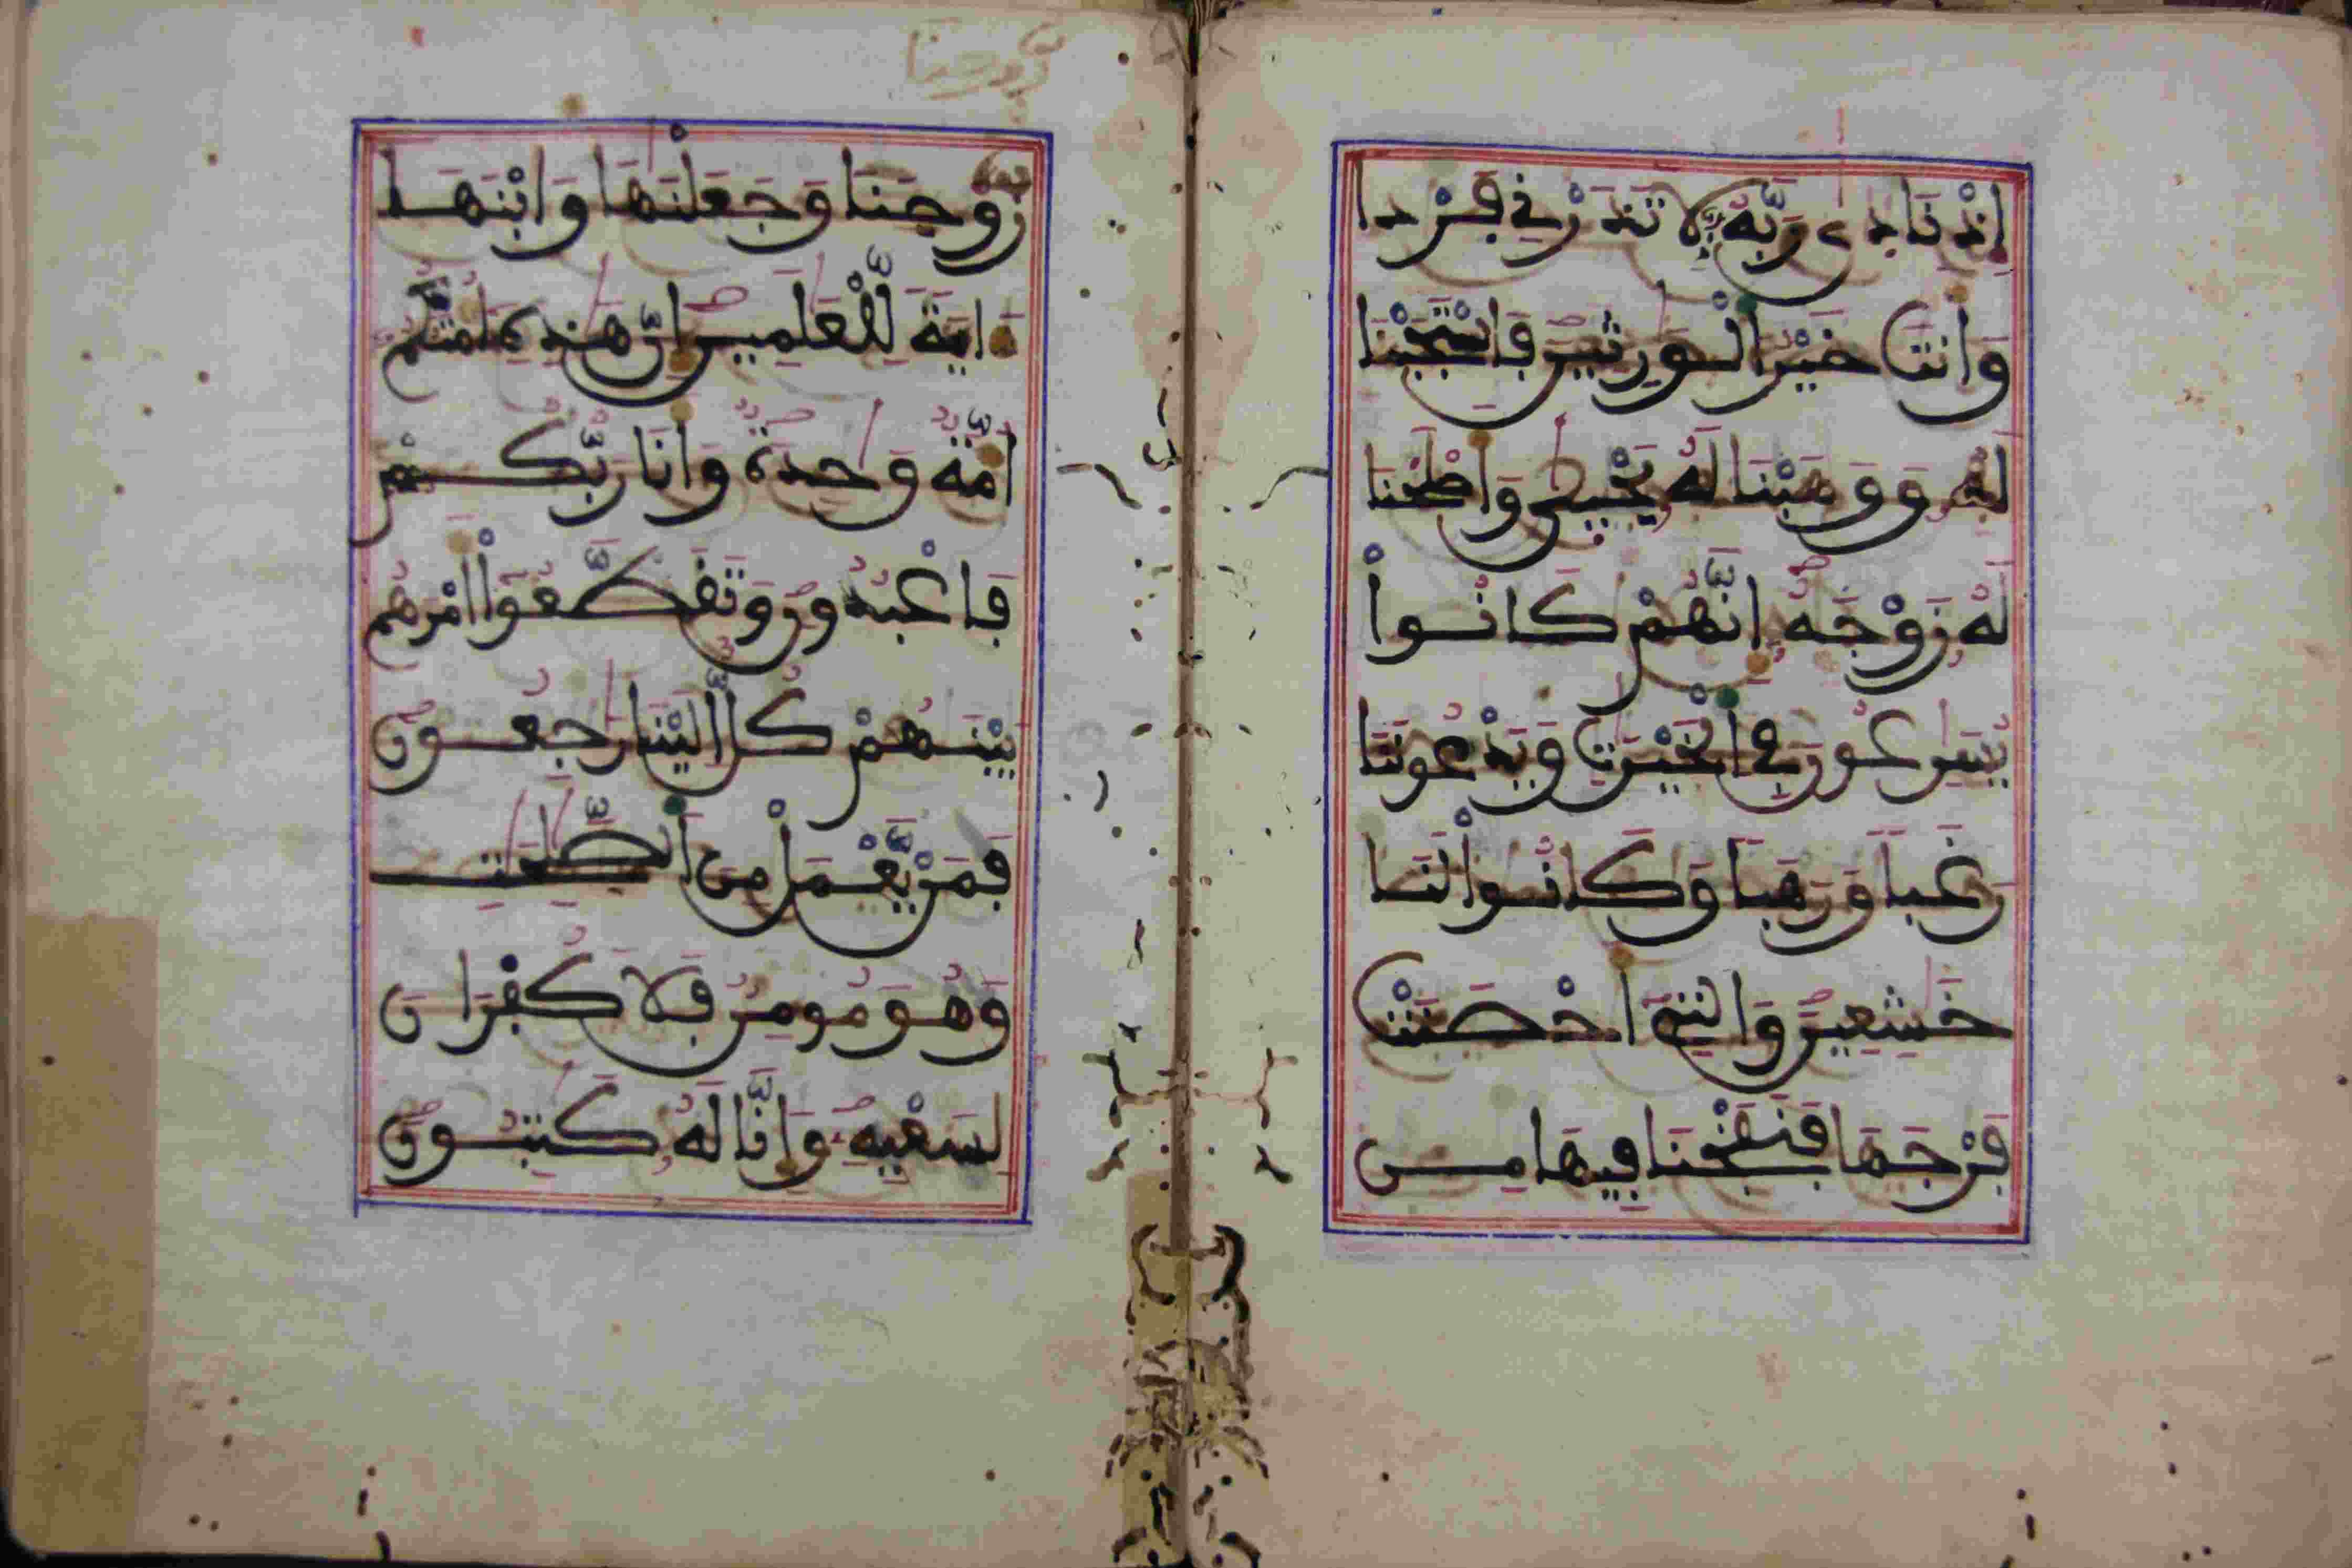 إِذْ نَادِىٰ رَبَّهُۥ رَبِّ لَا تَذَرْنِے فَرْداٗ
وَأَنتَ خَيْرُ اَ۬لْوَٰرِثِينَ فَاسْتَجَبْنَا
لَهُۥ وَوَهَبْنَا لَهُۥ يَحْيِىٰ وَأَصْلَحْنَا
لَهُۥ زَوْجَهُۥٓ إِنَّهُمْ كَانُواْ
يُسَٰرِعُونَ فِے اِ۬لْخَيْرَٰتِ وَيَدْعُونَنَا
رَغَباٗ وَرَهَباٗ وَكَانُواْ لَنَا
خَٰشِعِينَ وَالتِےٓ أَحْصَنَتْ
فَرْجَهَا فَنَفَخْنَا فِيهَا مِن
رُّوحِنَا وَجَعَلْنَٰهَا وَابْنَهَا
ءَايَةٗ لِّلْعَٰلَمِينَ إِنَّ هَٰذِهِۦٓ أُمَّتُكُمُۥٓ
أُمَّةٗ وَٰحِدَةٗ وَأَنَا رَبُّكُمْ
فَاعْبُدُونِ وَتَقَطَّعُوٓاْ أَمْرَهُم
بَيْنَهُمْ كُلٌّ إِلَيْنَا رَٰجِعُونَ
فَمَنْ يَّعْمَلْ مِنَ اَ۬لصَّٰلِحَٰتِ
وَهُوَ مُومِنٞ فَلَا كُفْرَانَ
لِسَعْيِهِۦ وَإِنَّا لَهُۥ كَٰتِبُونَ